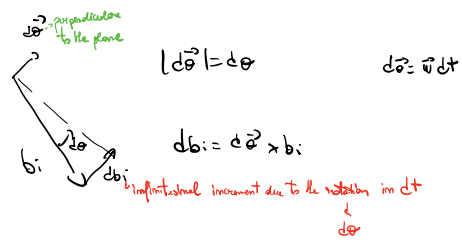 dθ⃗ perpendicular
to the plane
|dθ⃗| = dθ
dθ⃗ = w⃗ dt
dθ
bi
dbi
dbi = dθ⃗ × bi
infinitesimal increment due to the rotation in dt
dθ